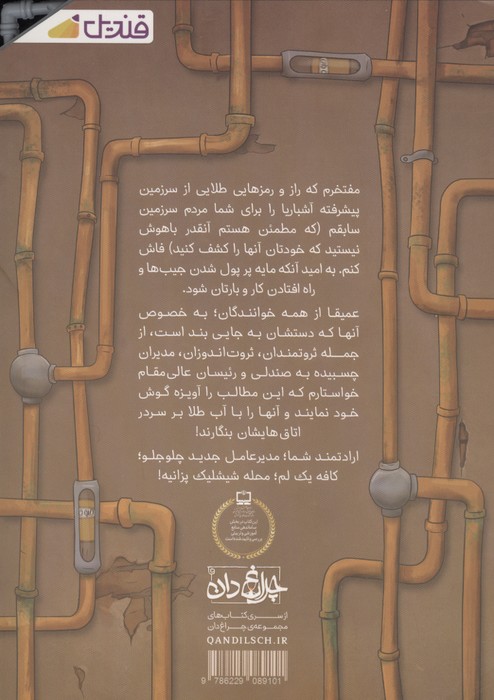 قندیل
مفتخرم که راز و رمزهایی طلایی از سرزمین
پیشرفته آشباریا را برای شما مردم سرزمین
سابقم (که مطمئن هستم آنقدر باهوش
نیستید که خودتان آنها را کشف کنید) فاش
کنم. به امید آنکه مایه پر پول شدن جیب‌ها و
راه افتادن کار و بارتان شود.
عمیقا از همه خوانندگان؛ به خصوص
آنها که دستشان به جایی بند است، از
جمله ثروتمندان، ثروت‌اندوزان، مدیران
چسبیده به صندلی و رئیسان عالی‌مقام
خواستارم که این مطالب را آویزه گوش
خود نمایند و آنها را با آب طلا بر سردر
اتاق‌هایشان بنگارند!
ارادتمند شما؛ مدیرعامل جدید چلوجلو؛
کافه یک لم؛ محله شیشلیک پزانیه!
چراغ‌دان
از سری کتاب‌های
مجموعه‌ی چراغ‌دان
QANDILSCH.IR
9 786229 089101